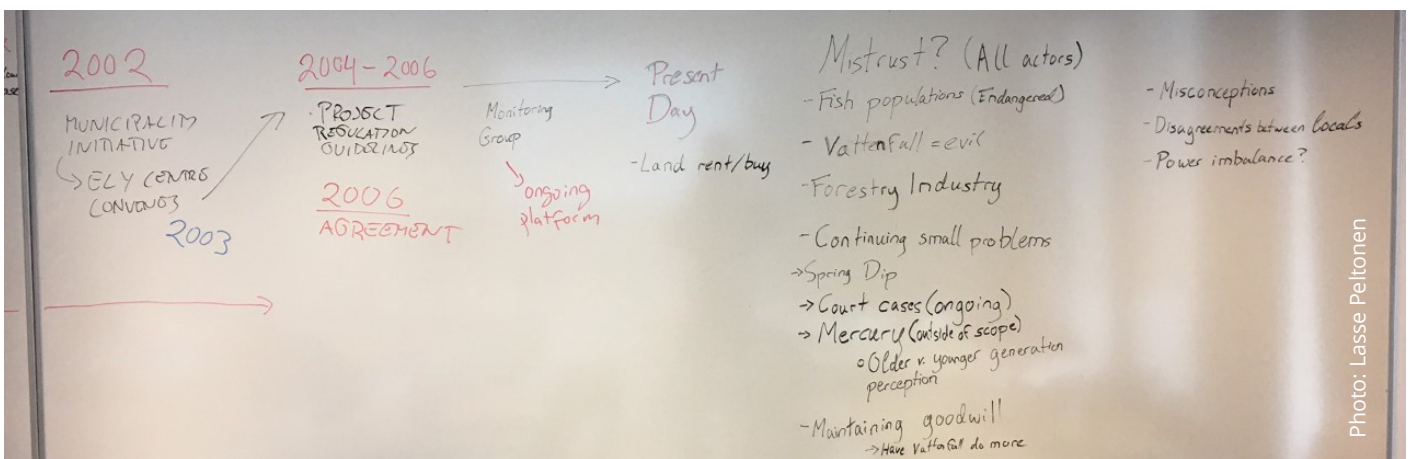 2002
MUNICIPALITY
INITIATIVE
ELY CENTRE
CONVENES
2003
2004-2006
· PROJECT
REGULATION
GUIDELINES
2006
AGREEMENT
Monitoring
Group
ongoing
platform
Present
Day
-Land rent/buy
Mistrust? (All actors)
-Fish populations (Endangered)
- Vattenfall = evil
-Forestry Industry
-Continuing small problems
→Spring Dip
→Court cases (ongoing)
→Mercury (outside of scope)
○Older v. younger generation
perception
-Maintaining goodwill
→Have Vattenfall do more
- Misconceptions
-Disagreements between locals
-Power imbalance?
Photo: Lasse Peltonen